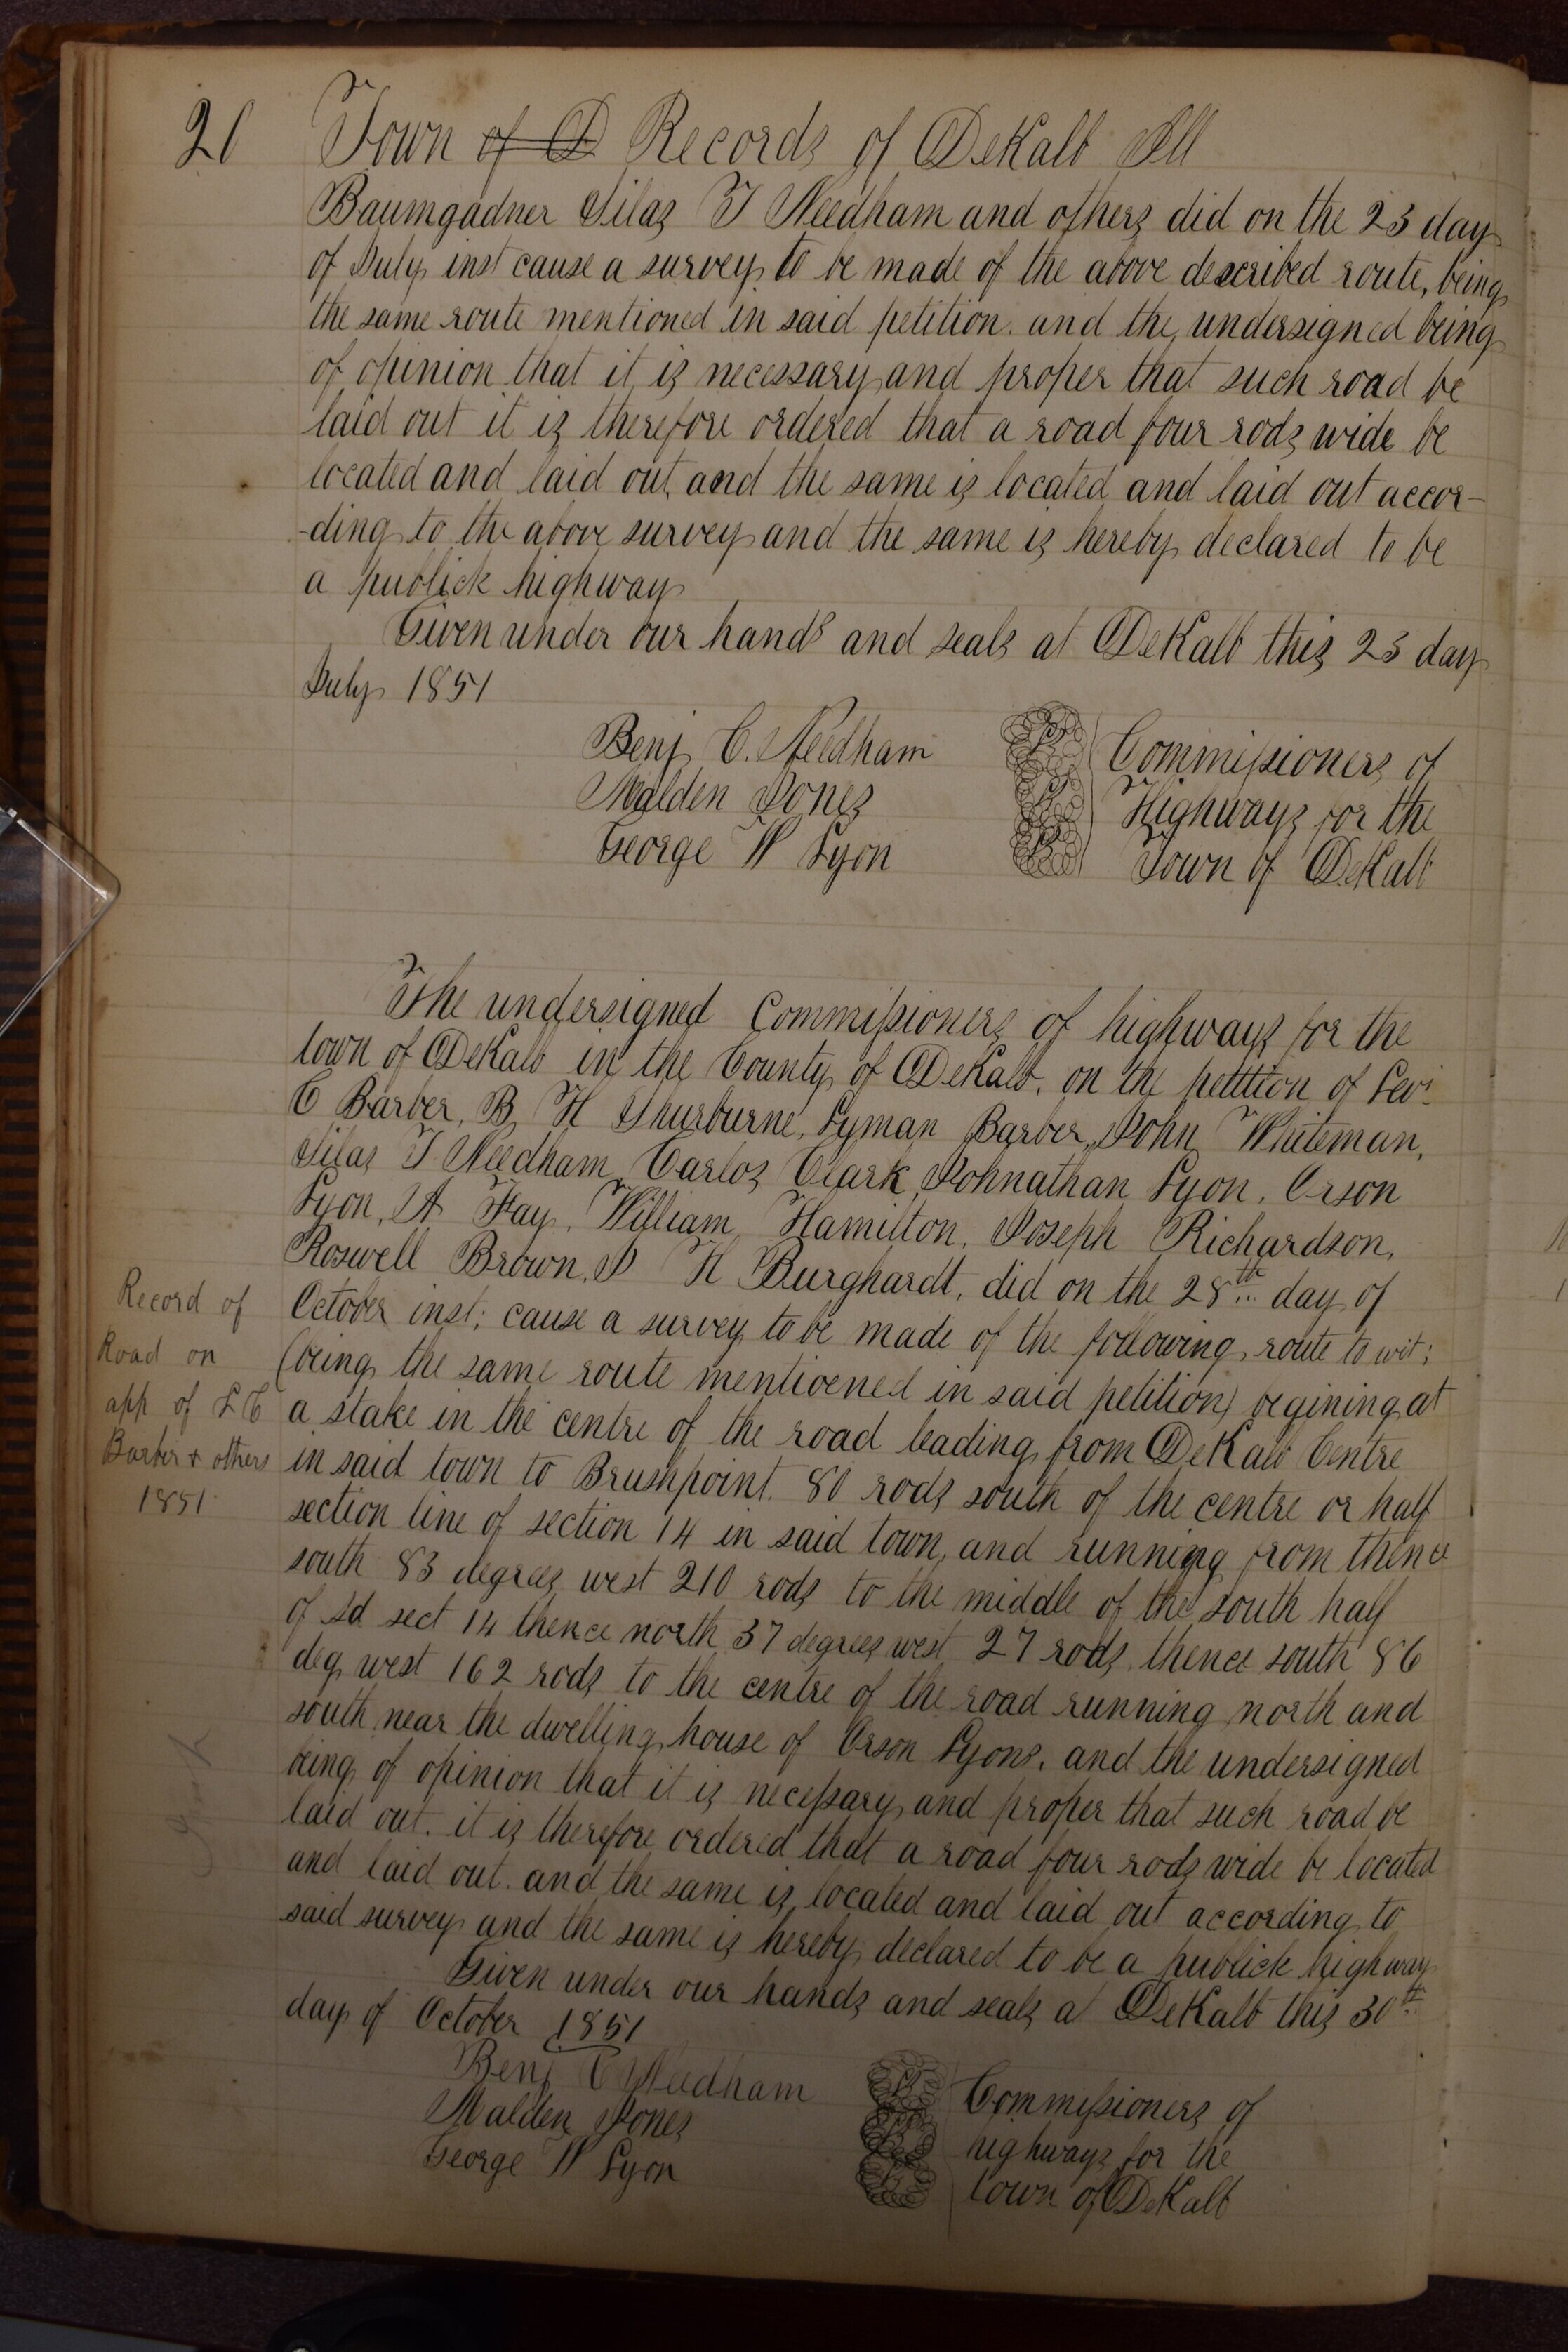 20 Town of D Records of DeKalb Ill
Baumgadner Silas T Needham and others did on the 23 day
of July inst cause a survey to be made of the above described route, being
the same route mentioned in said petition. and the undersigned being
of opinion that it is necessary and proper that such road be
laid out it is therefore ordered that a road four rods wide be
located and laid out, and the same is located and laid out accor-
-ding to the above survey and the same is hereby declared to be
a publick highway
Given under our hands and seals at DeKalb this 23 day
July 1851
Benj C. Needham Commissioners of
Malden Jones Highways for the
George W Lyon Town of DeKalb
The undersigned Commissioners of highways for the
town of DeKalb in the County of DeKalb, on the petition of Levi
C Barber, B H Thurburne, Lyman Barber, John Whiteman,
Silas T Needham, Carlos Clark, Johnathan Lyon, Orson
Lyon, A Fay, William Hamilton, Joseph Richardson,
Roswell Brown, J H Burghardt, did on the 28th day of
October inst; cause a survey to be made of the following route to wit;
(being the same route mentioened in said petition) begining at
a stake in the centre of the road leading from DeKalb Centre
in said town to Brushpoint. 80 rods south of the centre or half
section line of section 14 in said town, and running from thence
south 83 degrees west 210 rods to the middle of the south half
of sd sect 14 thence north 37 degrees west 27 rods, thence south 86
deg west 162 rods to the centre of the road running north and
south near the dwelling house of Orson Lyons. and the undersigned
being of opinion that it is necessary and proper that such road be
laid out. it is therefore ordered that a road four rods wide be located
and laid out. and the same is located and laid out according to
said survey and the same is hereby declared to be a publick highway
Given under our hands and seals at DeKalb this 30th
day of October 1851
Benj C Needham Commissioners of
Malden Jones highways for the
George W Lyon town of DeKalb
Record of
Road on
app of L C
Barber + others
1851